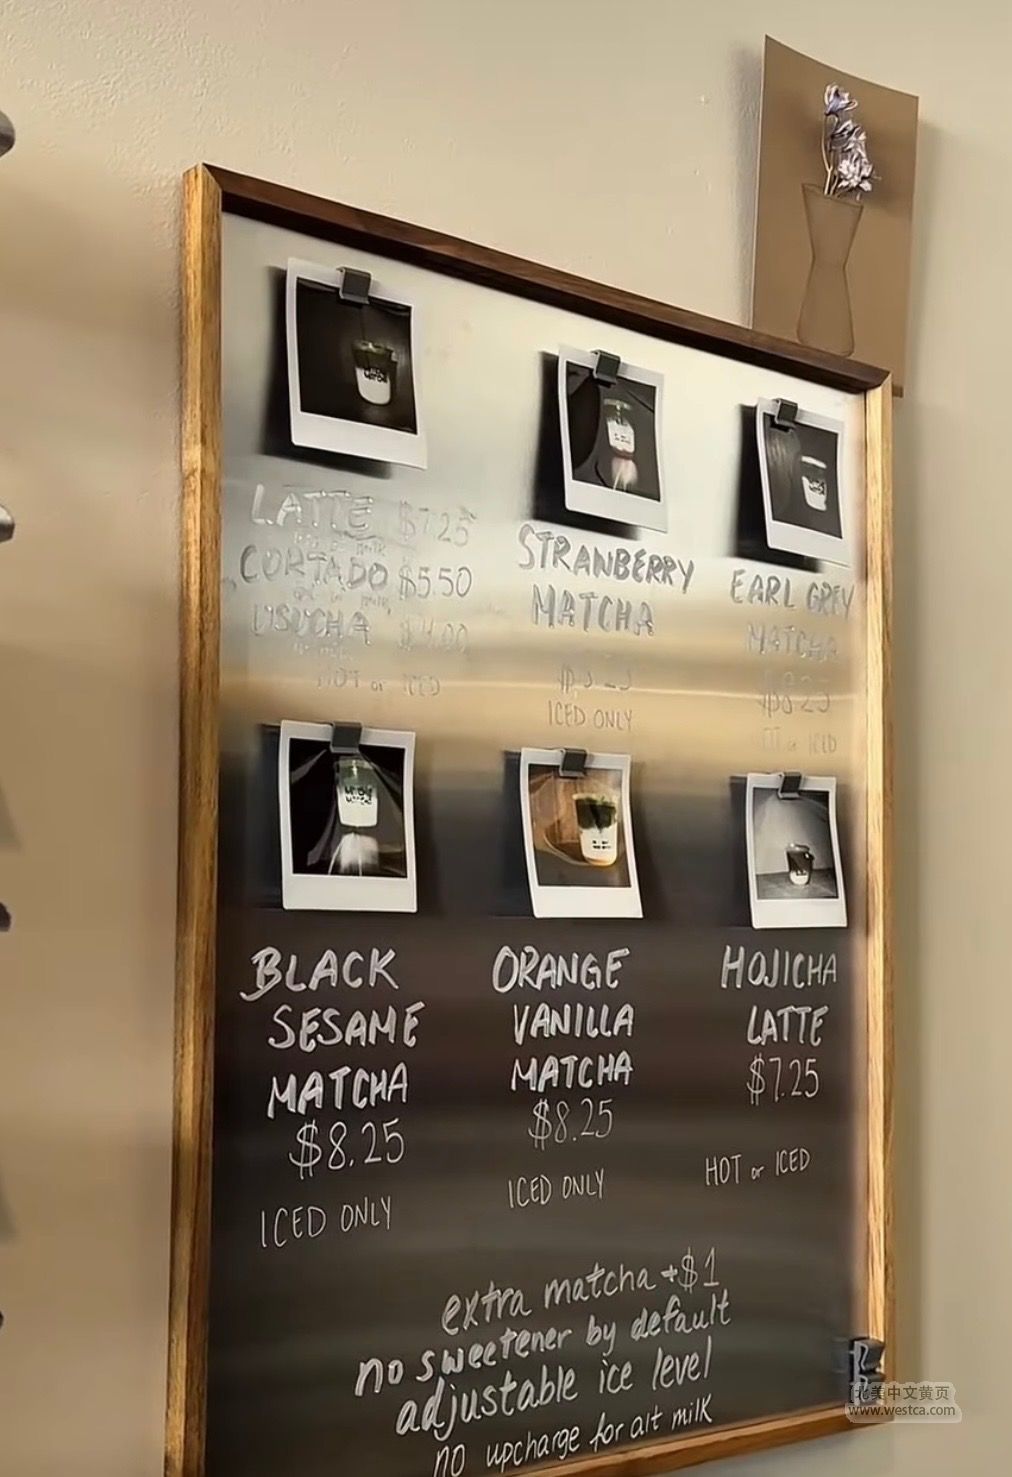 LATTE $7.25
CORTADO $5.50
USUCHA
HOT or ICED
STRANBERRY
MATCHA
ICED ONLY
EARL GREY
MATCHA
$8.25
HOT or ICED
BLACK
SESAME
MATCHA
$8.25
ICED ONLY
ORANGE
VANILLA
MATCHA
$8.25
ICED ONLY
HOJICHA
LATTE
$7.25
HOT or ICED
extra matcha +$1
no sweetener by default
adjustable ice level
no upcharge for alt milk
北美中文黄页
www.westca.com